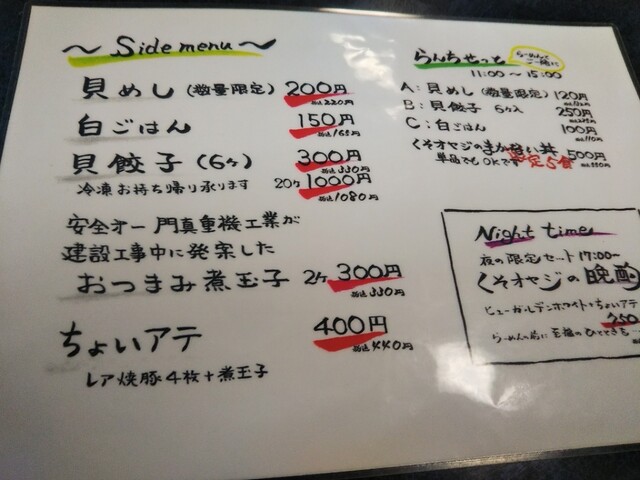 ～ Side menu ～
貝めし（数量限定） 200円
税込220円
白ごはん 150円
税込165円
貝餃子（6ヶ） 300円
税込330円
冷凍お持ち帰り承ります 20ヶ 1000円
税込1080円
安全オー 門真重機工業が
建設工事中に発案した
おつまみ煮玉子 2ヶ 300円
税込330円
ちょいアテ 400円
税込440円
レア焼豚4枚+煮玉子
らんちせっと らーめんとご一緒に
11:00～15:00
A：貝めし（数量限定） 120円
B：貝餃子 6ヶ入 250円
C：白ごはん 100円
税込110円
くそオヤジのまかない丼 500円
税込550円
単品でもOKです 限定5食
Night time
夜の限定セット 17:00～
くそオヤジの晩酌
ヒューガルデンホワイト+ちょいアテ
らーめんの前に至福のひとときを